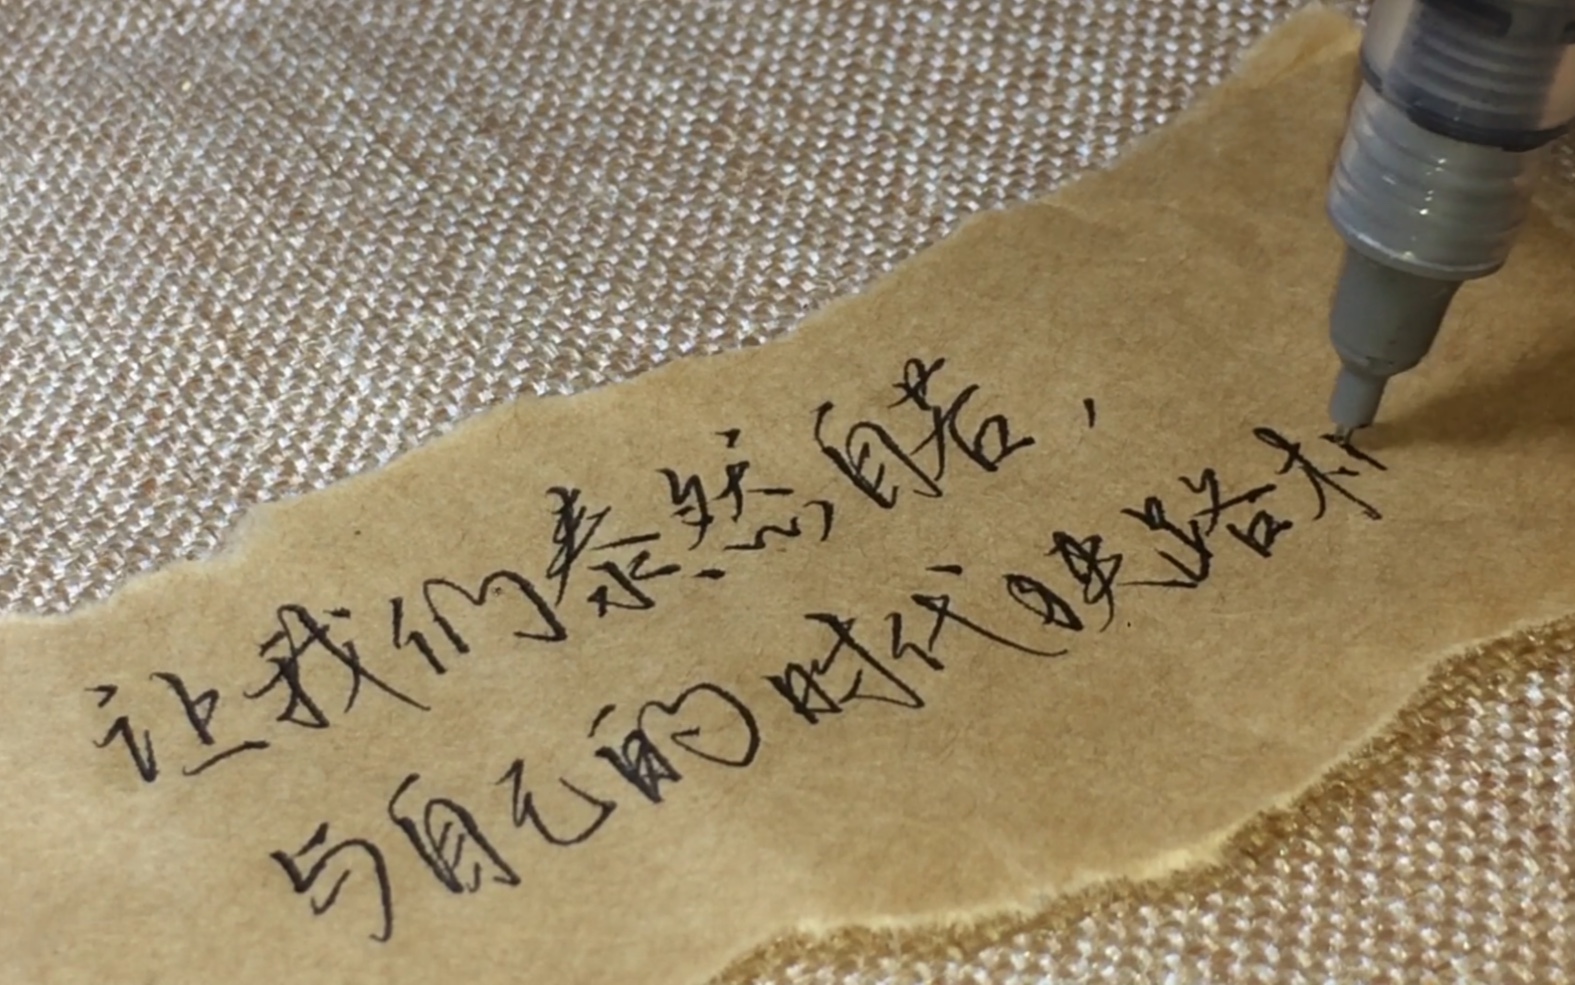 让我们泰然自若，
与自己的时代狭路